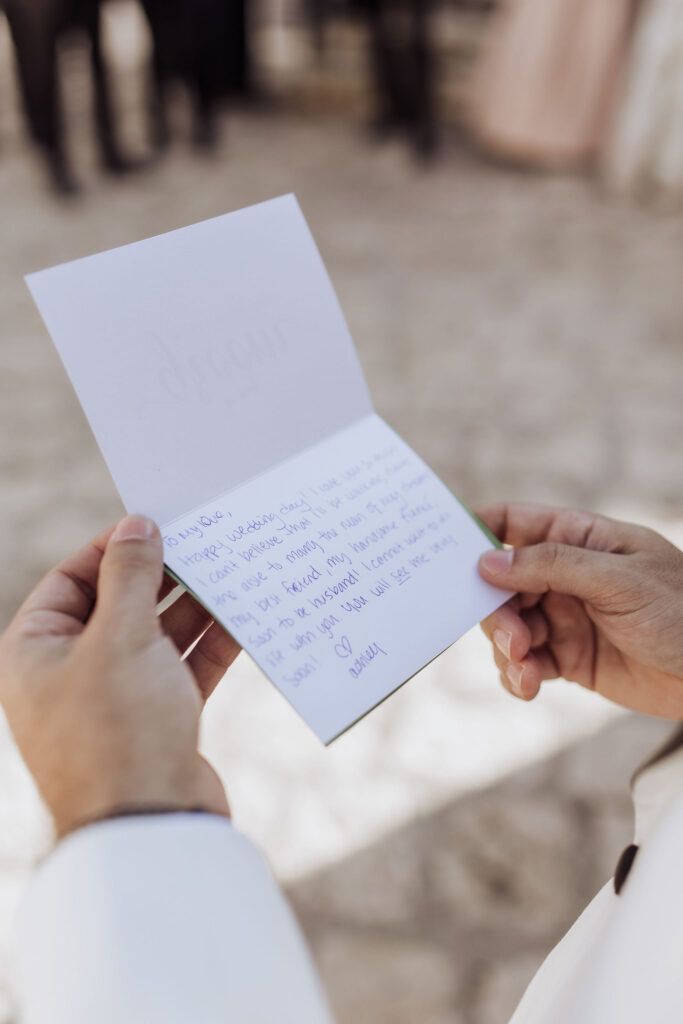 To my love,
Happy wedding day! I love you so much
I can't believe that I'll be walking down
the aisle to marry the man of my dreams
my best friend, my handsome fiancé,
soon to be husband! I cannot wait to do
life with you. You will see me very
soon!
♡
ashley